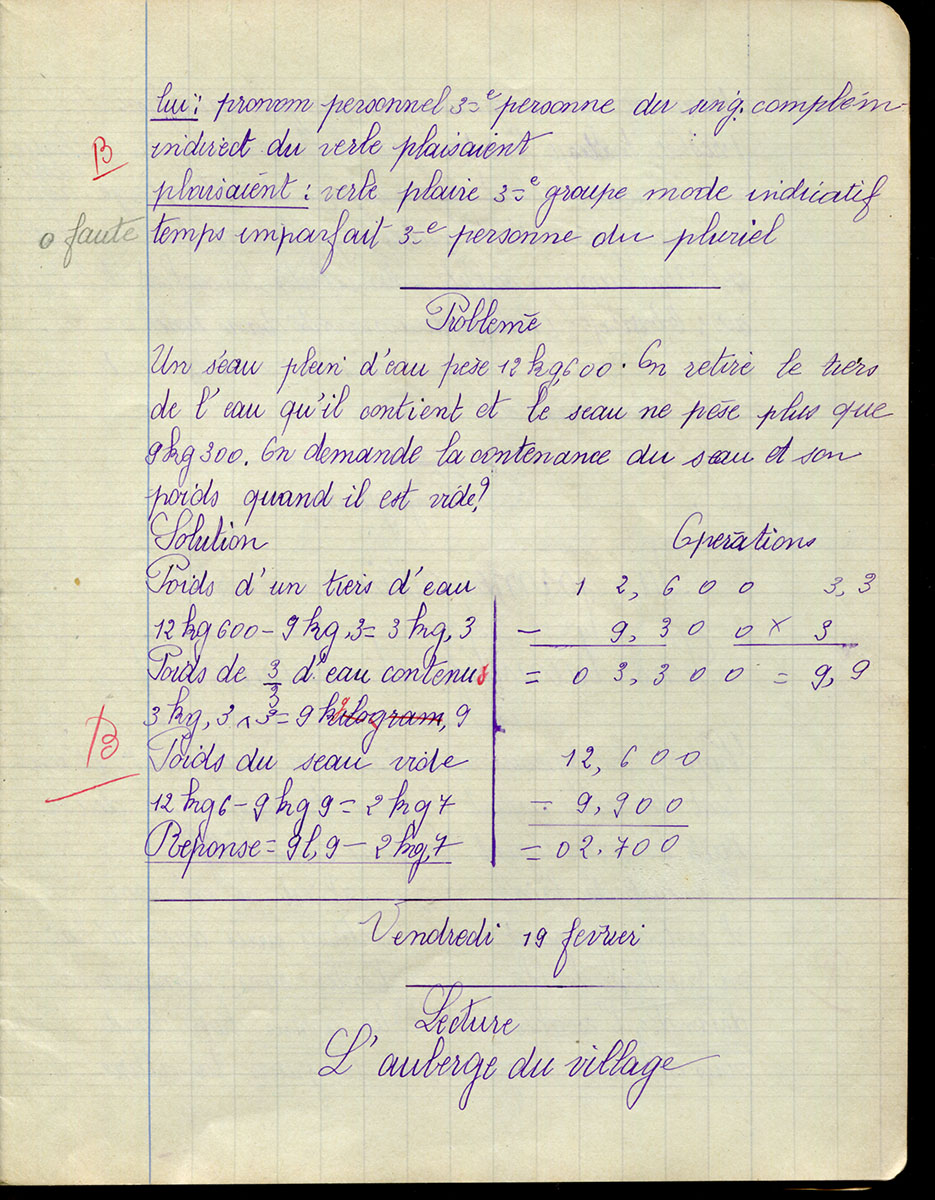 lui : pronom personnel 3e personne du sing. complém
B
indirect du verbe plaisaient
plaisaient : verbe plaire 3e groupe mode indicatif
0 faute
temps imparfait 3e personne du pluriel
Problème
Un seau plein d'eau pèse 12kg,600. On retire le tiers
de l'eau qu'il contient et le seau ne pèse plus que
9kg300. On demande la contenance du seau et son
poids quand il est vide?
Solution
Opérations
Poids d'un tiers d'eau
12,600 3,3
12kg600 - 9kg,3 = 3kg,3
- 9,300 × 3
Poids de 3/3 d'eau contenus
= 03,300 = 9,9
3kg,3 × 3 = 9 kilogram, 9
B
Poids du seau vide
12,600
12kg6 - 9kg9 = 2kg7
- 9,900
Réponse = 9l,9 - 2kg,7
= 02,700
Vendredi 19 février
Lecture
L'auberge du village